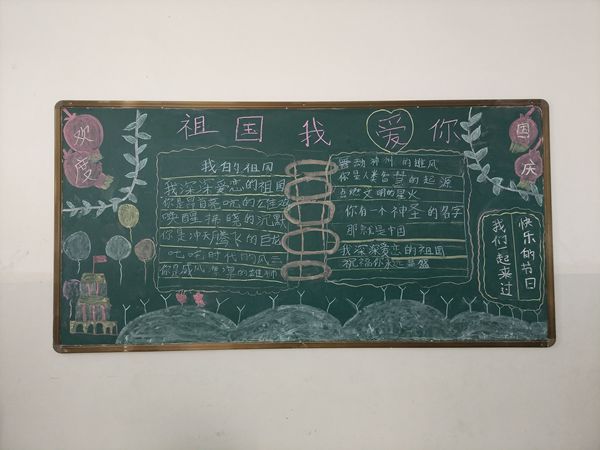 祖国我爱你
欢度
国庆
我的祖国
我深深爱恋的祖国
你是昂首高吭的
唤醒拂晓的沉默
你是冲天腾飞的巨龙
叱咤时代的风云
你是威风凛凛的雄狮
舞动神州的雄风
你是人类智慧的起源
点燃文明的星火
你有一个神圣的名字
那就是中国
我深深爱恋的祖国
祝福你永远
快乐的节日
我们一起来过